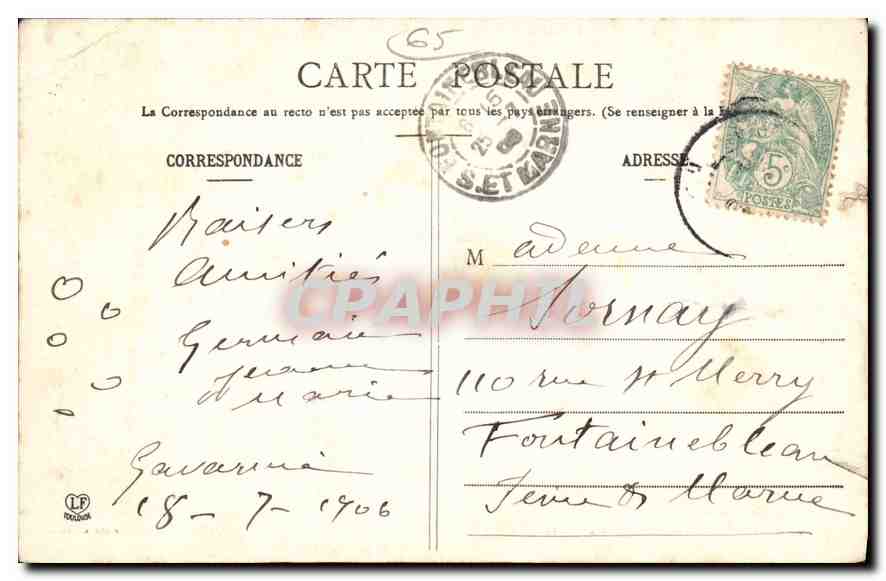 65
CARTE POSTALE
La Correspondance au recto n'est pas acceptée par tous les pays étrangers. (Se renseigner à la
CORRESPONDANCE
ADRESSE
FONTAINEBLEAU
S. ET MARNE
5c
POSTES
Baisers
Amitiés
Germain
Marie
Gavarnie
18-7-1906
LF
TOULOUSE
Madame
Sornay
110 rue St Merry
Fontainebleau
Seine & Marne
CPAPHIL